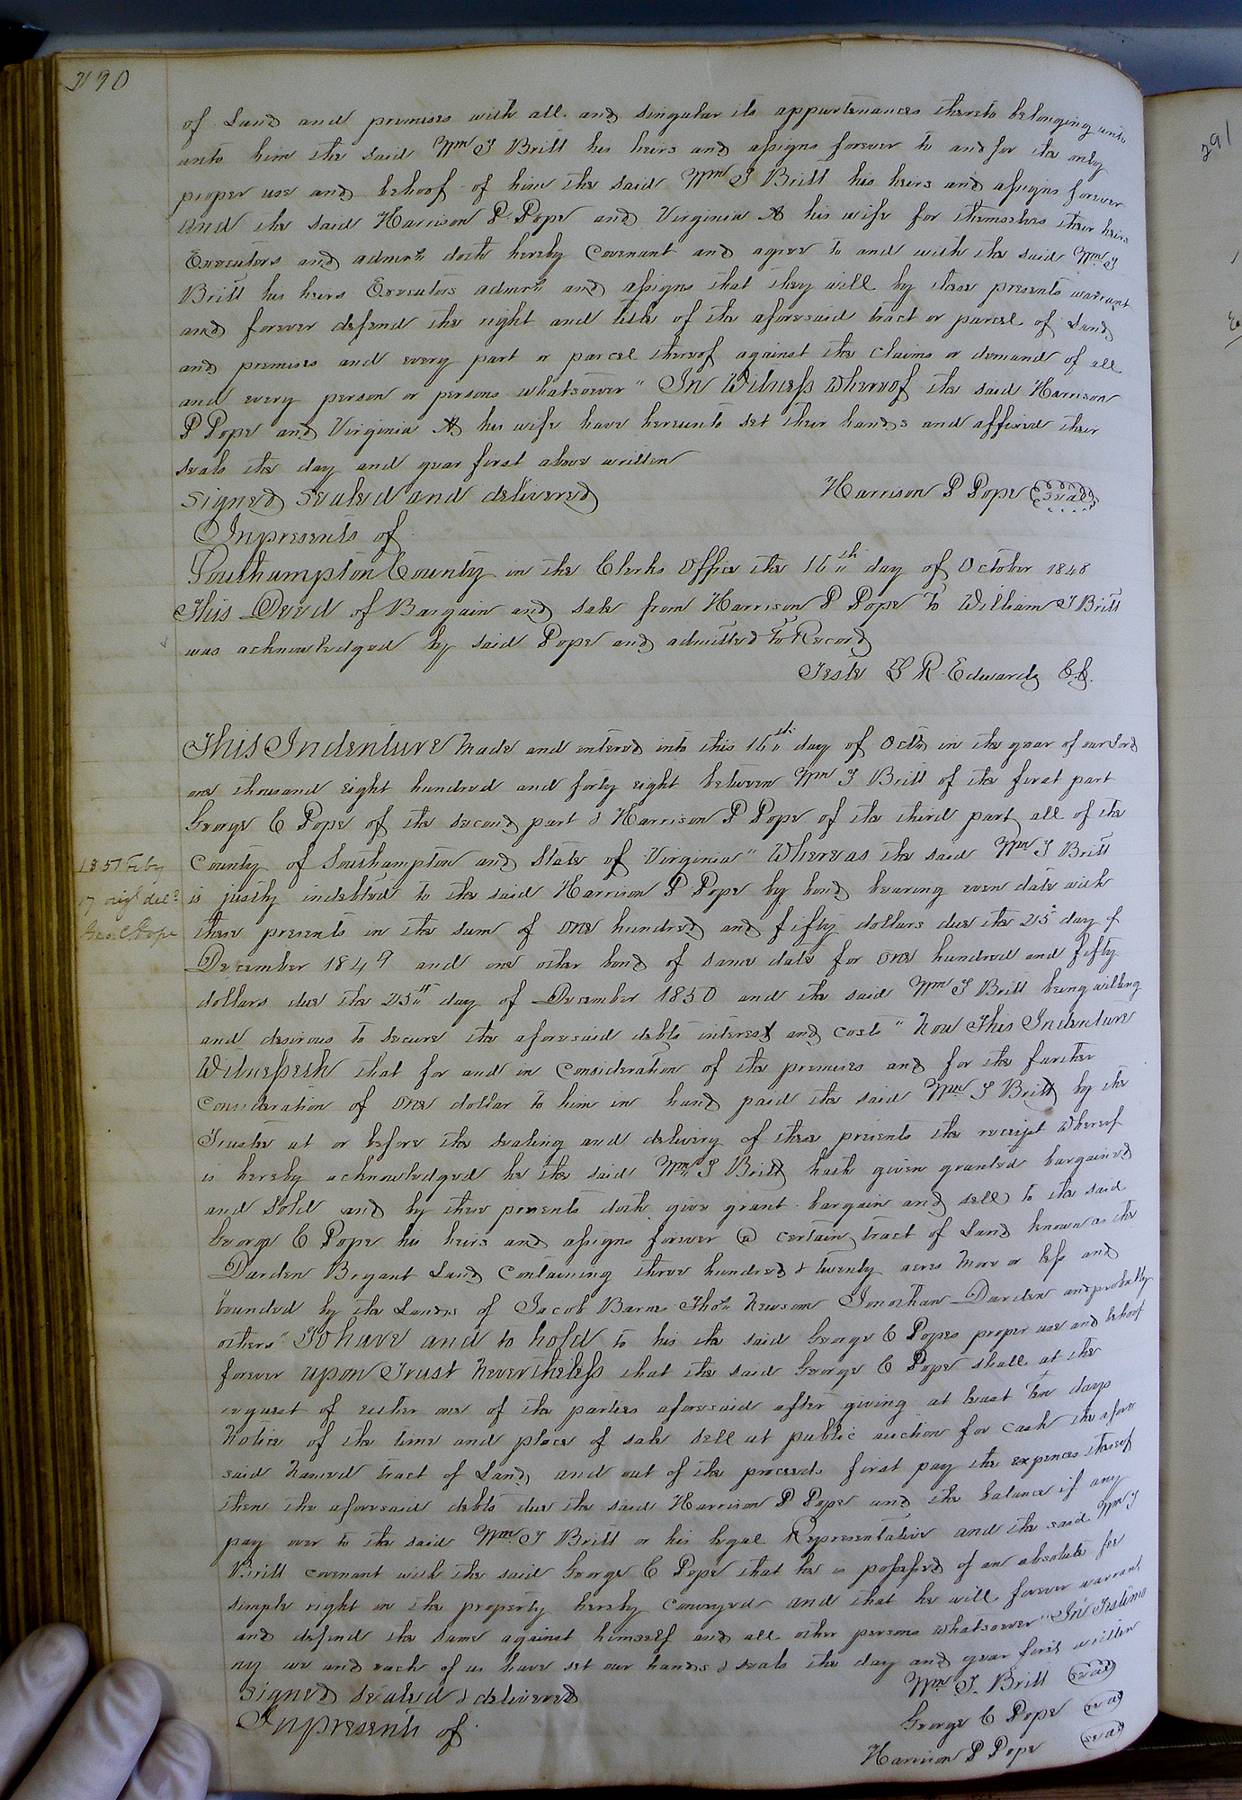 390
of Land and premises with all and singular its appurtenances thereto belonging unto
unto him the said Wm J Britt his heirs and assigns forever to and for the only
proper use and behoof of him the said Wm J Britt his heirs and assigns forever
and the said Harrison P Pope and Virginia A his wife for themselves their heirs
Executors and admrs doth hereby Covenant and agree to and with the said Wm J
Britt his heirs Executors admrs and assigns that they will by these presents warrant
and forever defend the right and title of the aforesaid tract or parcel of Land
and premises and every part or parcel thereof against the claims or demand of all
and every person or persons whatsoever" In Witness Whereof the said Harrison
P Pope and Virginia A his wife have hereunto set their hands and affixed their
seals the day and year first above written
Signed Sealed and delivered
Harrison P Pope (seal)
In presents of
Southampton County in the Clerks Office the 16th day of October 1848
This Deed of Bargain and sale from Harrison P Pope To William J Britt
was acknowledged by said Pope and admitted to Record
Teste L R Edwards CC.
This Indenture made and entered into this 16th day of Octr in the year of our Lord
one thousand eight hundred and forty eight between Wm J Britt of the first part
George C Pope of the second part & Harrison P Pope of the third part all of the
County of Southampton and State of Virginia" Whereas the said Wm J Britt
is justly indebted to the said Harrison P Pope by bond bearing even date with
these presents in the sum of one hundred and fifty dollars due the 25 day of
December 1849 and one other bond of same date for one hundred and fifty
dollars due the 25th day of December 1850 and the said Wm J Britt being willing
and desirous to secure the aforesaid debts interest and costs" Now This Indenture
Witnesseth that for and in Consideration of the premises and for the further
Consideration of one dollar to him in hand paid the said Wm J Britt by the
Trustee at or before the sealing and delivery of these presents the receipt whereof
is hereby acknowledged he the said Wm J Britt hath given granted bargained
and sold and by these presents doth give grant bargain and sell to the said
George C Pope his heirs and assigns forever a certain tract of Land known as the
Darden Bryant Land Containing three hundred & twenty acres more or less and
bounded by the Lands of Jacob Barnes Thos Newsom Jonathan Darden and probably
others" To have and to hold to his the said George C Popes proper use and behoof
forever upon Trust Nevertheless that the said George C Pope shall at the
request of either one of the parties aforesaid after giving at least ten days
Notice of the time and place of sale sell at public auction for cash the afore
said Named tract of Land, and out of the proceeds first pay the expences thereof
then the aforesaid debts due the said Harrison P Pope and the balance if any
pay over to the said Wm J Britt or his legal Representative and the said Wm J
Britt covenant with the said George C Pope that he is possessed of an absolute fee
simple right in the property hereby conveyed and that he will forever warrant
and defend the same against himself and all other persons whatsoever" In Testimo
ny we and each of us have set our hands & seals the day and year first written
Signed sealed & delivered
Wm J. Britt (seal)
In presents of
George C Pope (seal)
Harrison P Pope (seal)
1851 Feby
17 origl deld
Geo C Pope
291